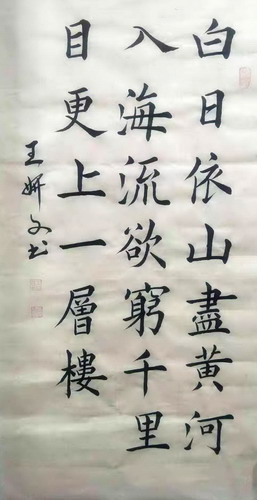 白日依山盡黄河
入海流欲窮千里
目更上一層樓
王妍文书